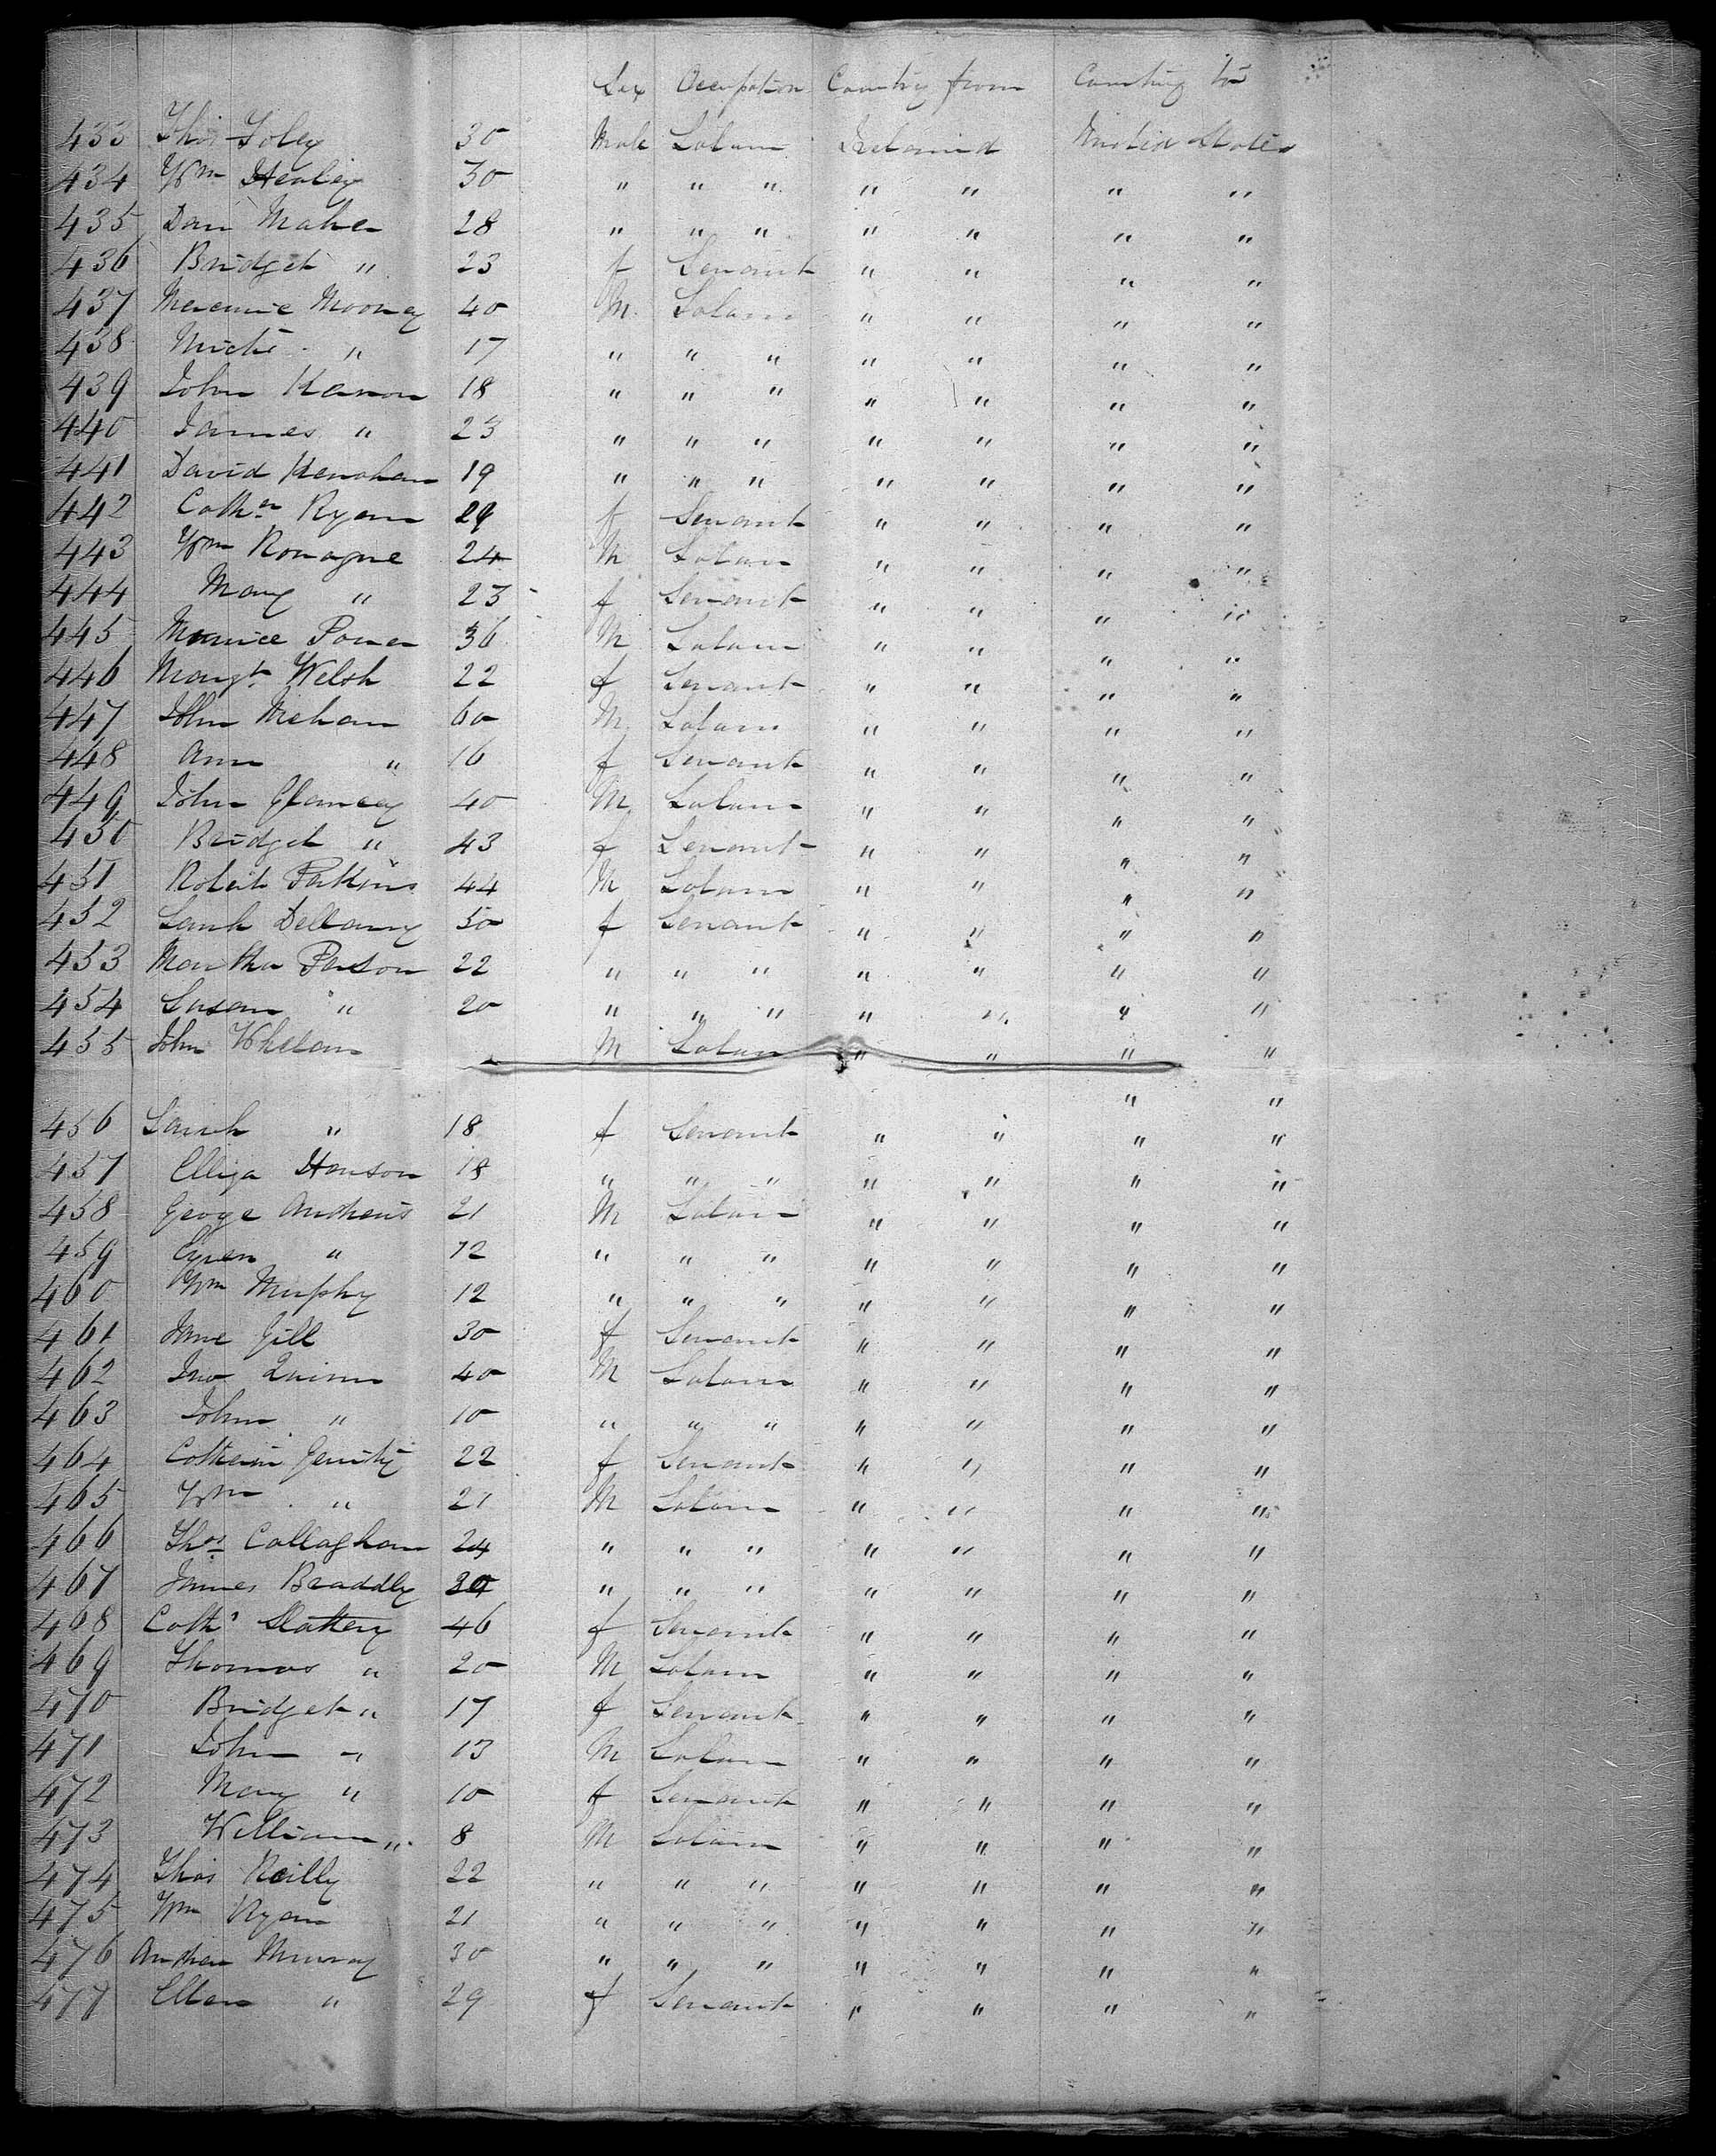 Sex Occupation Country from Country to
433 Thos Foley 30 Male Labour Ireland United States
434 Wm Healey 30 " " " " " " "
435 Dan Maher 28 " " " " " " "
436 Bridget " 23 f Servant " " " "
437 Mooney 40 M Labour " " " "
438 Michl " 17 " " " " " " "
439 John Hanon 18 " " " " " " "
440 James " 23 " " " " " " "
441 David Henahan 19 " " " " " " "
442 Cathn Ryan 29 f Servant " " " "
443 Wm Ronayne 24 M Labour " " " "
444 Mary " 23 f Servant " " " "
445 Maurice Power 36 M Labour " " " "
446 Margt Welsh 22 f Servant " " " "
447 John Mehan 60 M Labour " " " "
448 Ann " 16 f Servant " " " "
449 John Glancey 40 M Labour " " " "
450 Bridget " 43 f Servant " " " "
451 Robert Perkins 44 M Labour " " " "
452 Sarah Dellany 50 f Servant " " " "
453 Martha Parson 22 " " " " " " "
454 Susan " 20 " " " " " " "
455 John Whelan M Labour " " " "
" "
456 Sarah " 18 f Servant " " " "
457 Elliza Hanson 18 " " " " " " "
458 George Andrews 21 M Labour " " " "
459 " 12 " " " " " " "
460 Wm Murphy 12 " " " " " " "
461 Jane Gill 30 f Servant " " " "
462 Jno Quinn 40 M Labour " " " "
463 John " 10 " " " " " " "
464 Catherin 22 f Servant " " " "
465 Wm " 21 M Labour " " " "
466 Thos Callaghan 24 " " " " " " "
467 James Braddly " " " " " " "
468 Cath Slattery 46 f Servant " " " "
469 Thomas " 20 M Labour " " " "
470 Bridget " 17 f Servant " " " "
471 John " 13 M Labour " " " "
472 Mary " 10 f Servant " " " "
473 William " 8 M Labour " " " "
474 Thos Reilly 22 " " " " " " "
475 Wm Ryan 21 " " " " " " "
476 Andrew Murray 30 " " " " " " "
477 Ellen " 29 f Servant " " " "